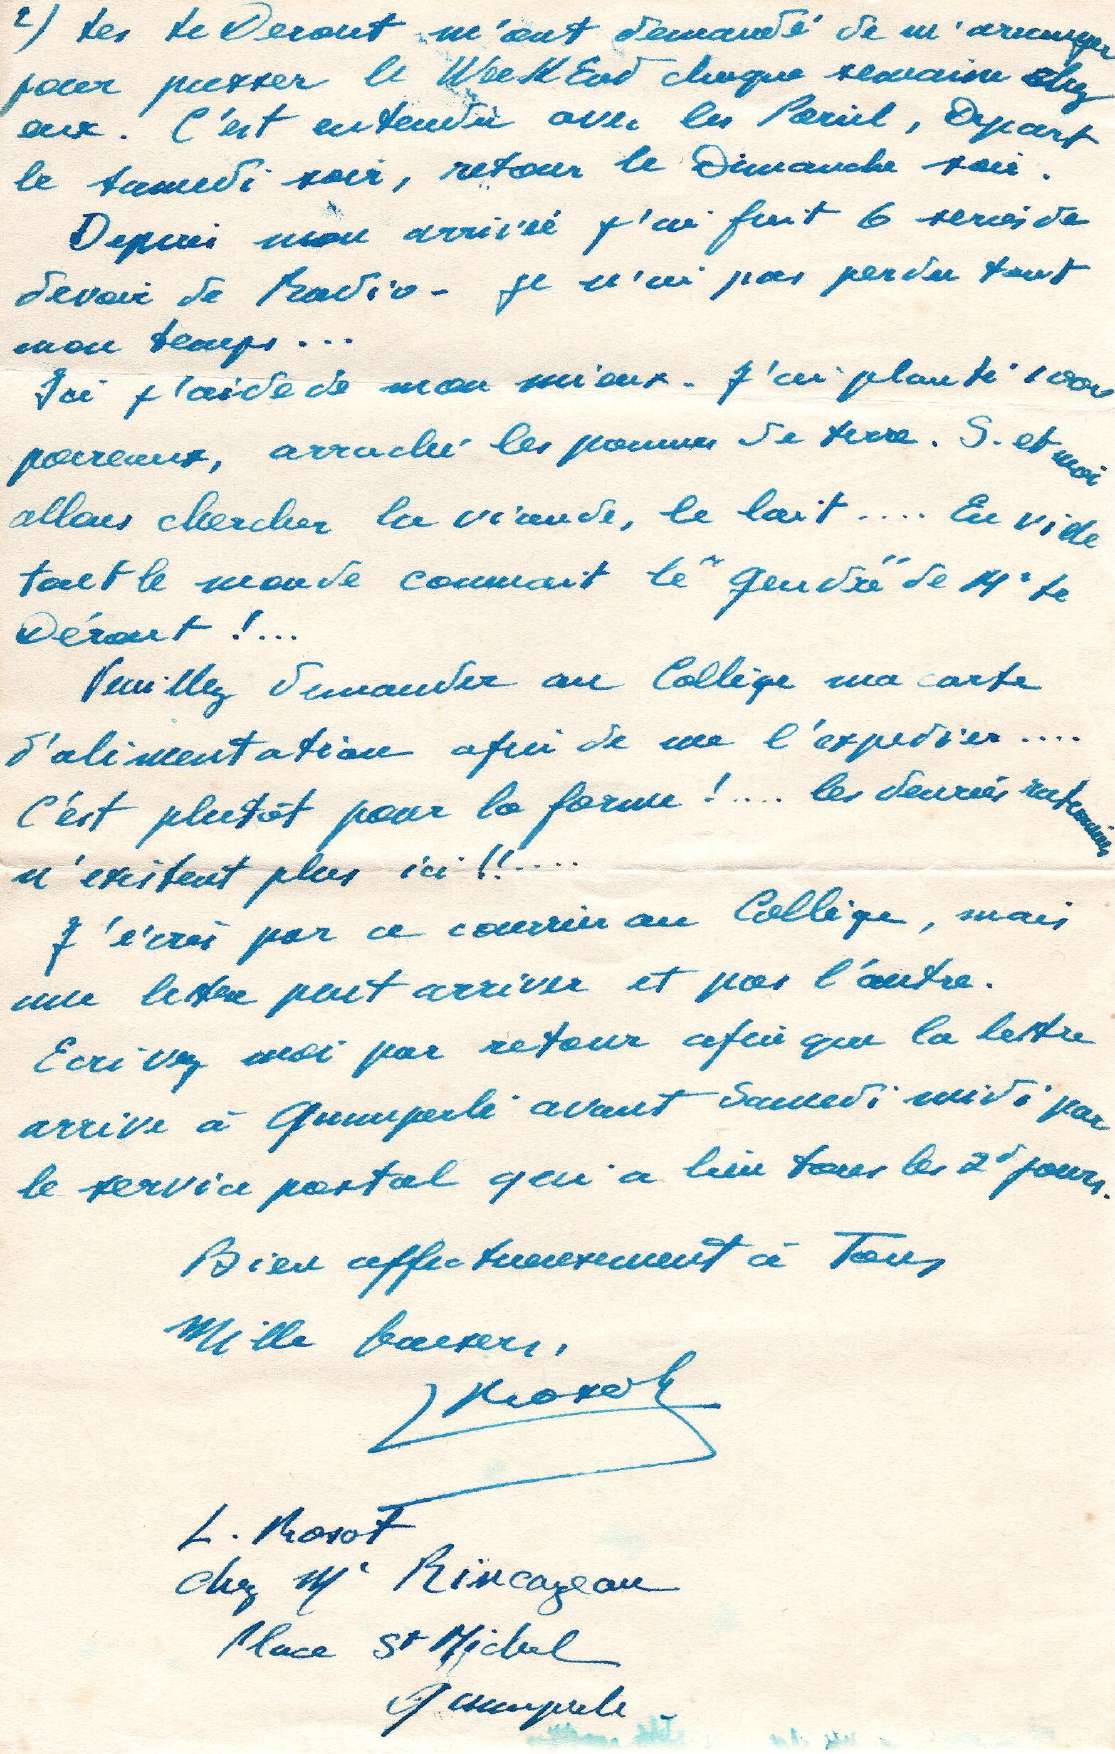 2) Les Le Deront m'ont demandé de m'arranger
pour passer le Week End chaque semaine chez
eux. C'est entendu avec les Pariel, Depart
le samedi soir, retour le Dimanche soir.
Depuis mon arrivée j'ai fait 6 series de
devoir de Radio - je n'ai pas perdu tout
mon temps...
Ici j'aide de mon mieux. J'ai planté 1000
poireaux, arraché les pommes de terre. S. et moi
allons chercher la viande, le lait.... En ville
tout le monde connait le "gendre" de Mr Le
Déront !...
Veuillez demander au Collège ma carte
d'alimentation afin de me l'expedier....
C'est plutôt pour la forme !.... les denrées
n'existent plus ici !!....
J'écris par ce courrier au Collège, mais
une lettre peut arriver et pas l'autre.
Ecrivez moi par retour afin que la lettre
arrive à Quimperlé avant Samedi midi par
le service postal qui a lieu tous les 2d jours.
Bien affectueusement à Tous
Mille baisers,
L. Rosot
chez Mr Rincazeau
Place St Michel
Quimperle -